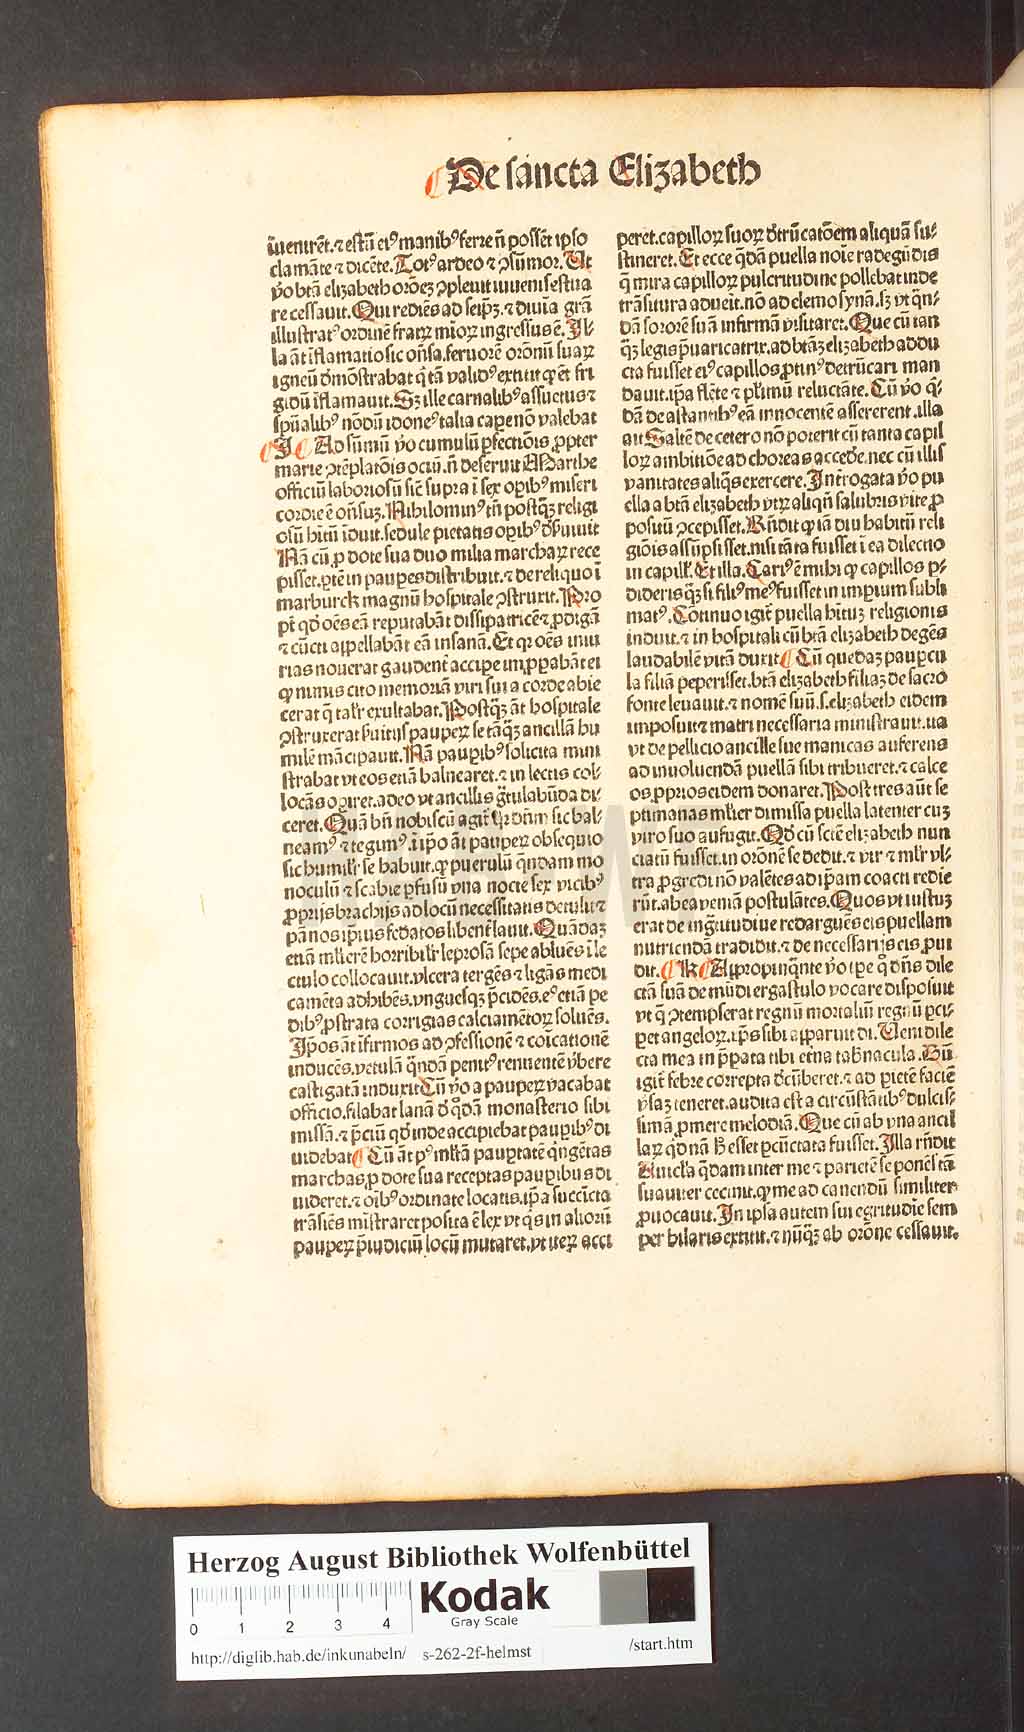 De sancta Elizabeth
iuueniret. ⁊ estū eiꝰ manibꝰ ferre n̄ possēt ipso
clamāte ⁊ dicēte. Totꝰ ardeo ⁊ ꝯsūmor. Ut
v̄o btā elizabeth orōeꝫ ꝯpleuit iuuenis estua
re cessauit. Qui rediēs ad seip̄ꝫ. ⁊ diuīa grā
illustratꝰ ordinē fratrꝫ mīorꝫ ingressus ē. Il-
la āt īflamatio sic onīsa. feruorē orōnū suaꝝ
igneū dmōstrabat q̄ tā validꝰ extitit ꝙ ēt fri
gidū īflamauit. Sꝫ ille carnalibꝰ assuetus ⁊
spūalibꝰ nōdū idoneꝰ talia capenō valebat
I Ad sūmū v̄o cumulū ꝑfectiōis ꝓpter
marie ꝯtēplatōis ociū. n̄ deseruit Marthe
officiū laboriosū sic̄ supra ī sex oꝑibꝰ miseri
cordie ē onīsuꝫ. Nihilominꝰ tn̄ postqꝫ religi
osū hitū īduit. sedule pietatis oꝑibꝰ dseruiuit
Nā cū ꝓ dote sua duo milia marchaꝝ rece
pisset. ꝑtē in pauꝑes distribuit. ⁊ de reliquo ī
marburck magnū hospitale ꝯstruxit. Pro
pt̄ qd̄ oēs eā reputabāt dissipatricē ⁊ ꝓdigā
⁊ cūcti appellabāt eā insanā. Et q̄ oēs iniu
rias nouerat gaudent̄ accipe imꝓpabāt ei
ꝙ nimis cito memoriā viri sui a corde abie
cerat q̄ talr̄ exultabat. Postqꝫ āt hospitale
ꝯstruxerat suitijs pauꝑeꝝ se tāqꝫ ancillā hu
milē mācipauit. Nā pauꝑibꝰ solicita mini
strabat vt eos etiā balnearet. ⁊ in lectis col-
locās oꝑiret. adeo vt ancillis grtulabūda di-
ceret. Quā bn̄ nobiscū agit̄ qr̄ dn̄m sic bal-
neamꝰ ⁊ tegimꝰ. in ip̄o āt pauꝑeꝝ obsequio
sic humilr̄ se habuit. ꝙ puerulū q̄ndam mo
noculū ⁊ scabie ꝑfusū vna nocte sex vicibꝰ
ꝓprijs brachijs ad locū necessitatis detulit ⁊
pānos ip̄ius fedatos libent̄ lauit. Quādaꝫ
etiā mlierē horribilr̄ leprosā sepe abluēs ī le
ctulo collocauit. vlcera tergēs ⁊ ligās medi
camēta adhibēs. vnguesqꝫ ꝑcidēs. eꝰ etiā pe
dibꝰ ꝓstrata corrigias calciamētoꝝ soluēs.
Ip̄os āt īfirmos ad ꝯfessionē ⁊ coīcationē
inducēs. vetulā q̄ndā penitꝰ rennuentē v̄bere
castigatā induxit Cū v̄o a pauꝑeꝝ vacabat
officio. filabat lanā d qdā monasterio sibi
missā. ⁊ p̄ciū qd̄ inde accipiebat pauꝑibꝰ di
uidebat Cū āt pꝰ mltā pauꝑtatē q̄ngētas
marchas. ꝓ dote sua receptas pauꝑibus di
uideret. ⁊ oībꝰ ordinate locatis. ip̄a succīcta
trāsiēs mīstraret posita ē lex vt q̄s in alioꝝ
pauꝑeꝝ p̄iudiciū locū mutaret. vt iteꝝ acci
peret. capilloꝝ suoꝝ dtrūcatōem aliquā su-
stineret. Et ecce q̄dā puella noīe radegūdis
q̄ mira capilloꝝ pulcritudine pollebat inde
trāsitura aduēit. nō ad elemosynā. sꝫ vt q̄n-
dā sororē suā infirmā visitaret. Que cū tan
qꝫ legis p̄uaricatrix. ad btāꝫ elizabeth addu
cta fuisset eiꝰ capillos ꝓtinꝰ detrūcari man
dauit. ip̄a flēte ⁊ plimū reluctāte. Cū v̄o q̄-
dā de astantibꝰ eā innocentē assererent. illa
ait Saltē de cetero nō poterit cū tanta capil
loꝝ ambitiōe ad choreas accede. nec cū illis
vanitates aliqs exercere. Intrrogata v̄o pu
ella a btā elizabeth vtꝝ aliqn̄ salubris vite ꝓ
positū ꝯcepisset. Rn̄dit ꝙ iā diu habitū reli
giōis assūpsisset. nisi tāta fuisset ī ea dilectio
in capill'. Et illa. Cariꝰ ē mihi ꝙ capillos ꝑ-
dideris qꝫ si filiꝰ meꝰ fuisset in imꝑium subli
matꝰ. Cōtinuo igit̄ puella hituꝫ religionis
induit. ⁊ in hospitali cū btā elizabeth degēs
laudabilē vitā duxit Cū quedaꝫ pauꝑcu
la filiā peperisset. btā elizabeth filiaꝫ de sacro
fonte leuauit. ⁊ nomē suū. s. elizabeth eidem
imposuit ⁊ matri necessaria ministrauit. ita
vt de pellicio ancille sue manicas auferens
ad inuoluendā puellā sibi tribueret. ⁊ calce
os ꝓprios eidem donaret. Post tres aūt se
ptimanas mlier dimissa puella latenter cuꝫ
viro suo aufugit. Qd̄ cū sctē elizabeth nun
ciatū fuisset. in orōne se dedit. ⁊ vir ⁊ mlr̄ vl-
tra ꝓgredi nō valētes ad ip̄am coacti redie
rūt. ab ea veniā postulātes. Quos vt iustuꝫ
erat de ingrtitudiue redarguēs eis puellam
nutriendā tradidit. ⁊ de necessarijs eis ꝓui
dit. K Appropinq̄nte v̄o tꝑe q̄ dn̄s dile
ctā suā de mūdi ergastulo vocare disposuit
vt q̄ ꝯtempserat regnū mortaliū regnū ꝑci-
ꝑet angeloꝝ. xp̄s sibi apparuit di. Veni dile
cta mea in p̄parata tibi etna tabnacula. Cū
igit̄ febre correpta dcūberet. ⁊ ad parietē faciē
v̄saꝫ teneret. audita est a circūstātibꝰ dulcis-
simā ꝓmere melodiā. Que cū ab vna ancil
laꝝ qdnā h̄ esset ꝑcūctata fuisset. Illa rn̄dit
Auicula q̄dam inter me ⁊ parietē se ponēs tā
suauiter cecinit. ꝙ me ad canendū similiter
ꝓuocauit. In ipsa autem sui egritudīe sem
per hilaris extitit. ⁊ nūqꝫ ab orōne cessauit.
HAB DWF
Herzog August Bibliothek Wolfenbüttel
0 1 2 3 4
Kodak
Gray Scale
http://diglib.hab.de/inkunabeln/ s-262-2f-helmst /start.htm